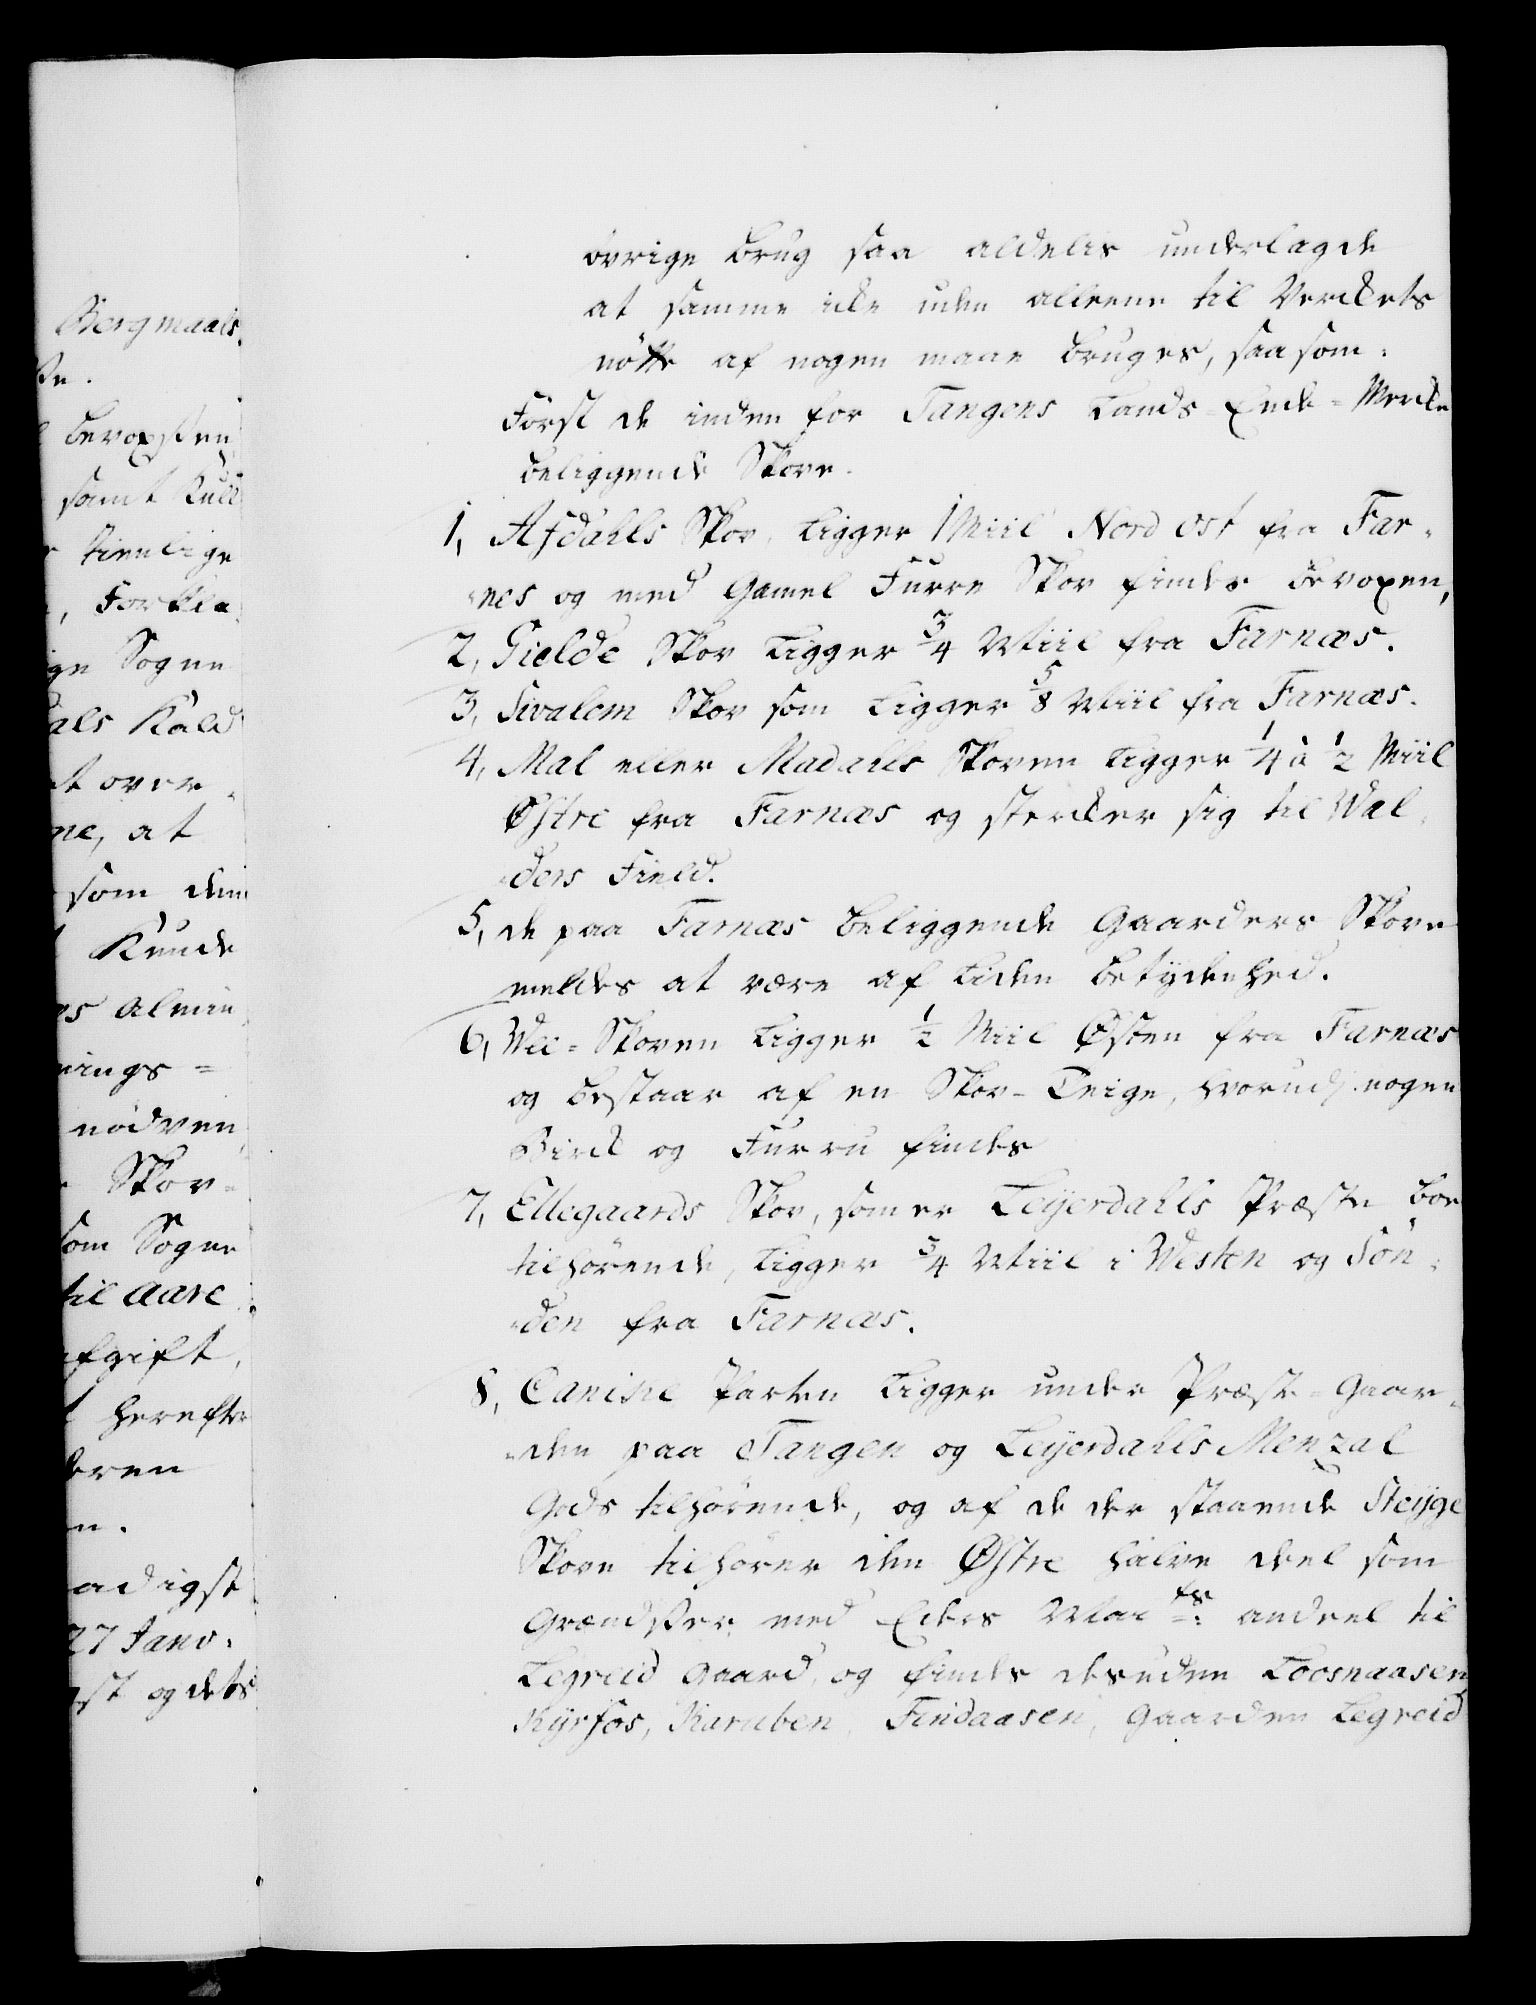 Bergmaals
bevoxsten
samt Kull
tienlige
Sogne
Kald
at over
at
som den
Kunde
Almin
nings =
nödven
Skov-
som Sogne
til Aare
Afgift,
herefter
27 Janv:
og dets
övrige brug saa aldelis underlagde
at samme icke uden alleene til Verckets
nötte af nogen maae bruges, saasom:
Först de inden for Tangens Lands-Ende-Mercke
beliggende Skove.
1, Afdahls Skov, Ligger 1 Miil Nord Ost fra Far-
-nes og med Gamel Furre Skov findes bevoxen,
2, Gielde Skov Ligger 3/4 Miil fra Farnæs.
3, Sivalem Skov som Ligger 5/8 Miil fra Farnæs.
4, Mal eller Madahls Skoven Ligger 1/4 à 1/2 Miil
Østre fra Farnæs og strecker sig til Wal-
-ders Field.
5, de paa Farnæs beliggende Gaarders Skove
meldes at være af Liden betydenhed.
6, Wee-Skoven Ligger 1/2 Miil Østen fra Farnæs
og bestaar af en Skov-Teige, hvorudj nogen
Birck og Furru findes
7, Ellegaards Skov, som er Leyerdahls Præste boe
tilhörende, Ligger 3/4 Miil i Westen og Sön-
-den fra Farnæs.
8, Canicke Parten Ligger under Præste-Gaar-
-den paa Tangen og Leyerdahls Menzal
Gods tilhörende, og af de der staaende Steyge
Skove tilhörer den Østre halve deel som
Grændsser med Eders May ts: andeel til
Legreid Gaard, og findes desuden Loosnaasen
Kyrfos, Karuben, Findaasen, Gaarden Legreid